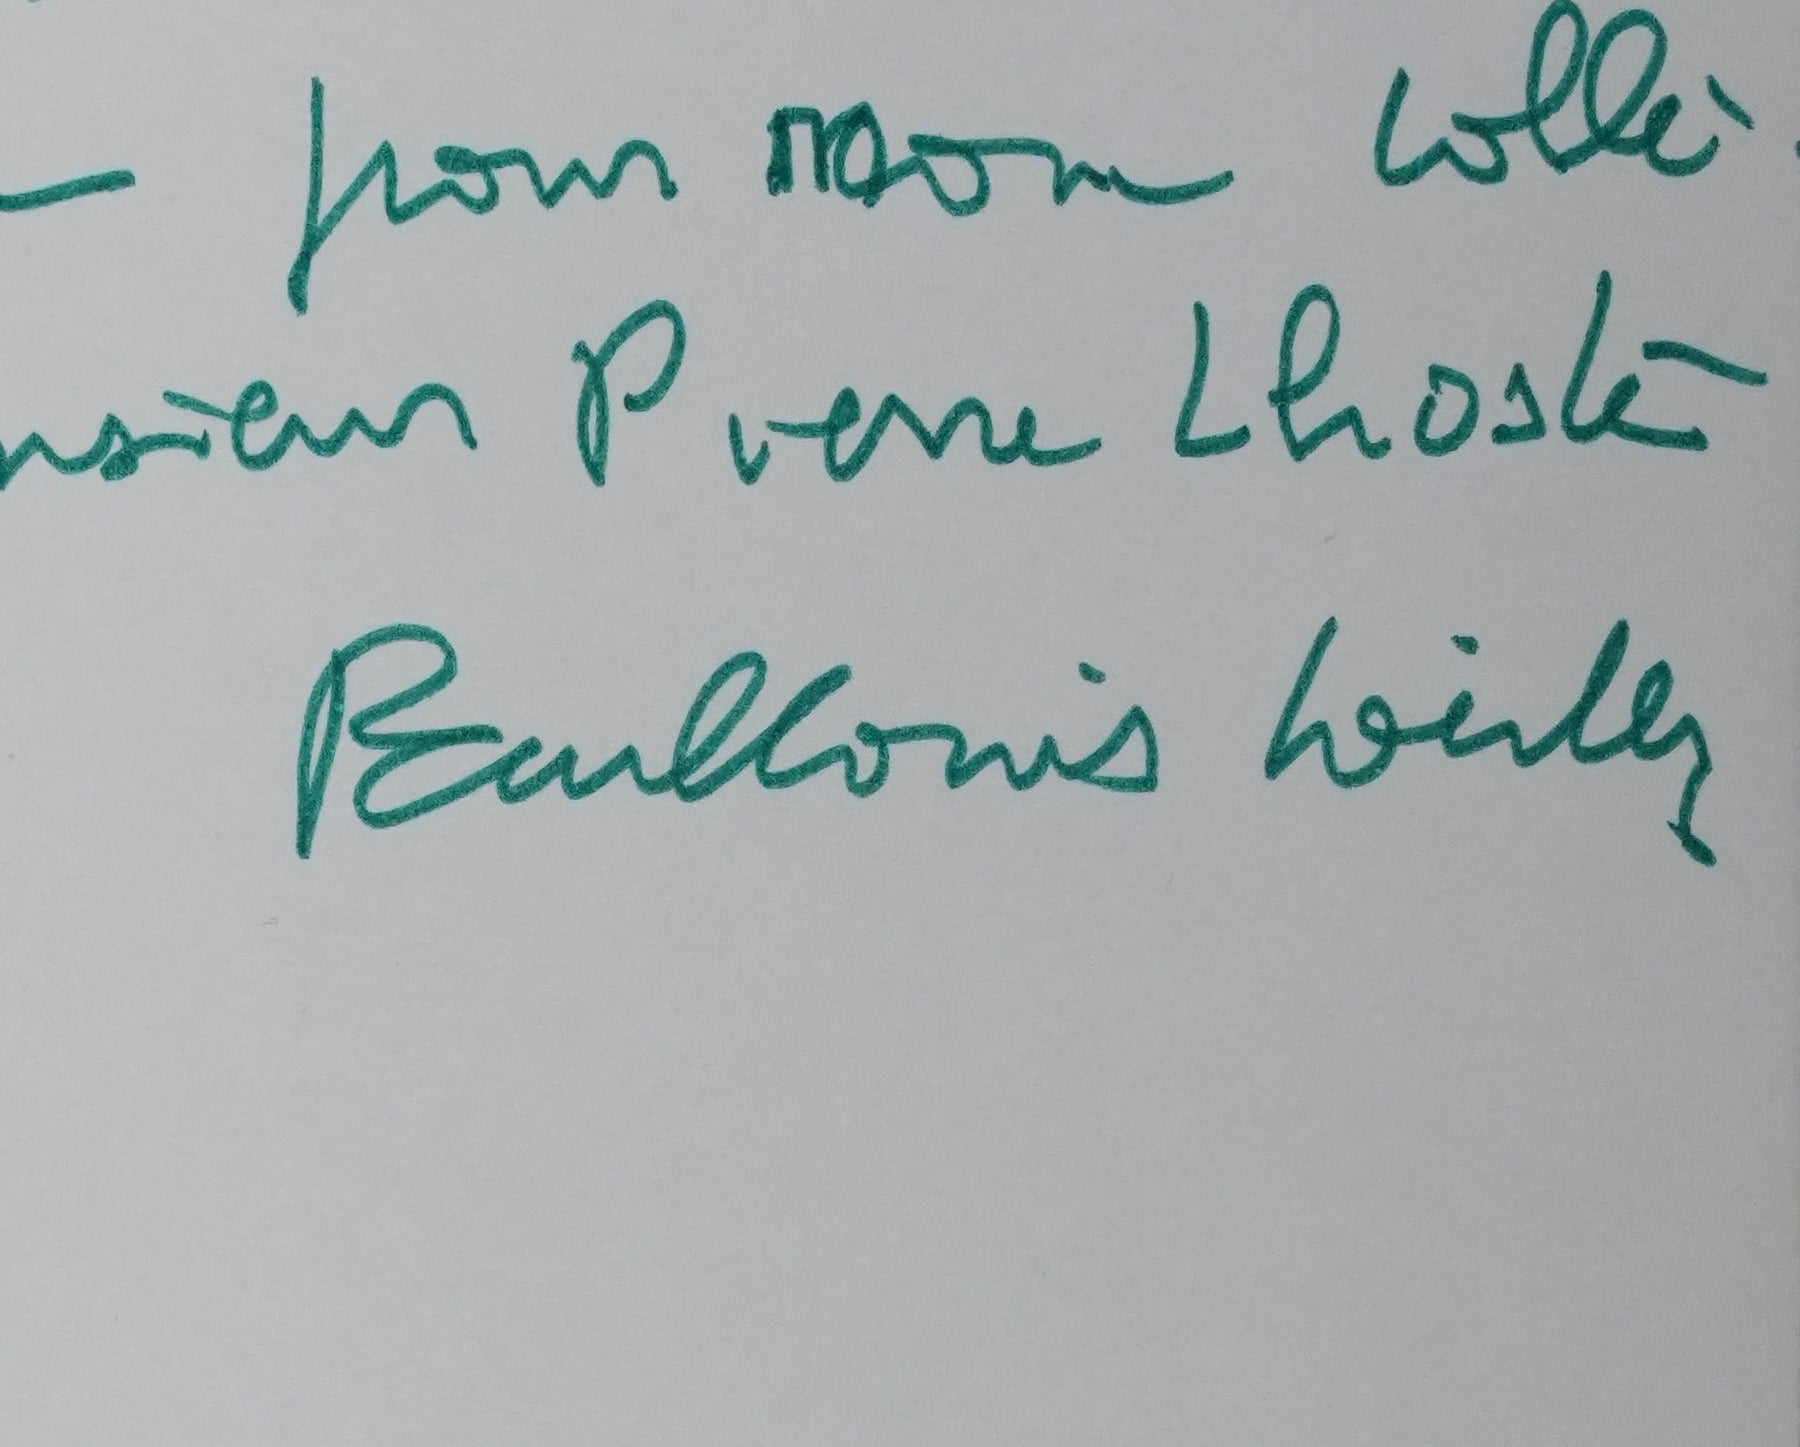 pour mon collè
nsieur Pierre Lhoste
Paul Louis Weiller